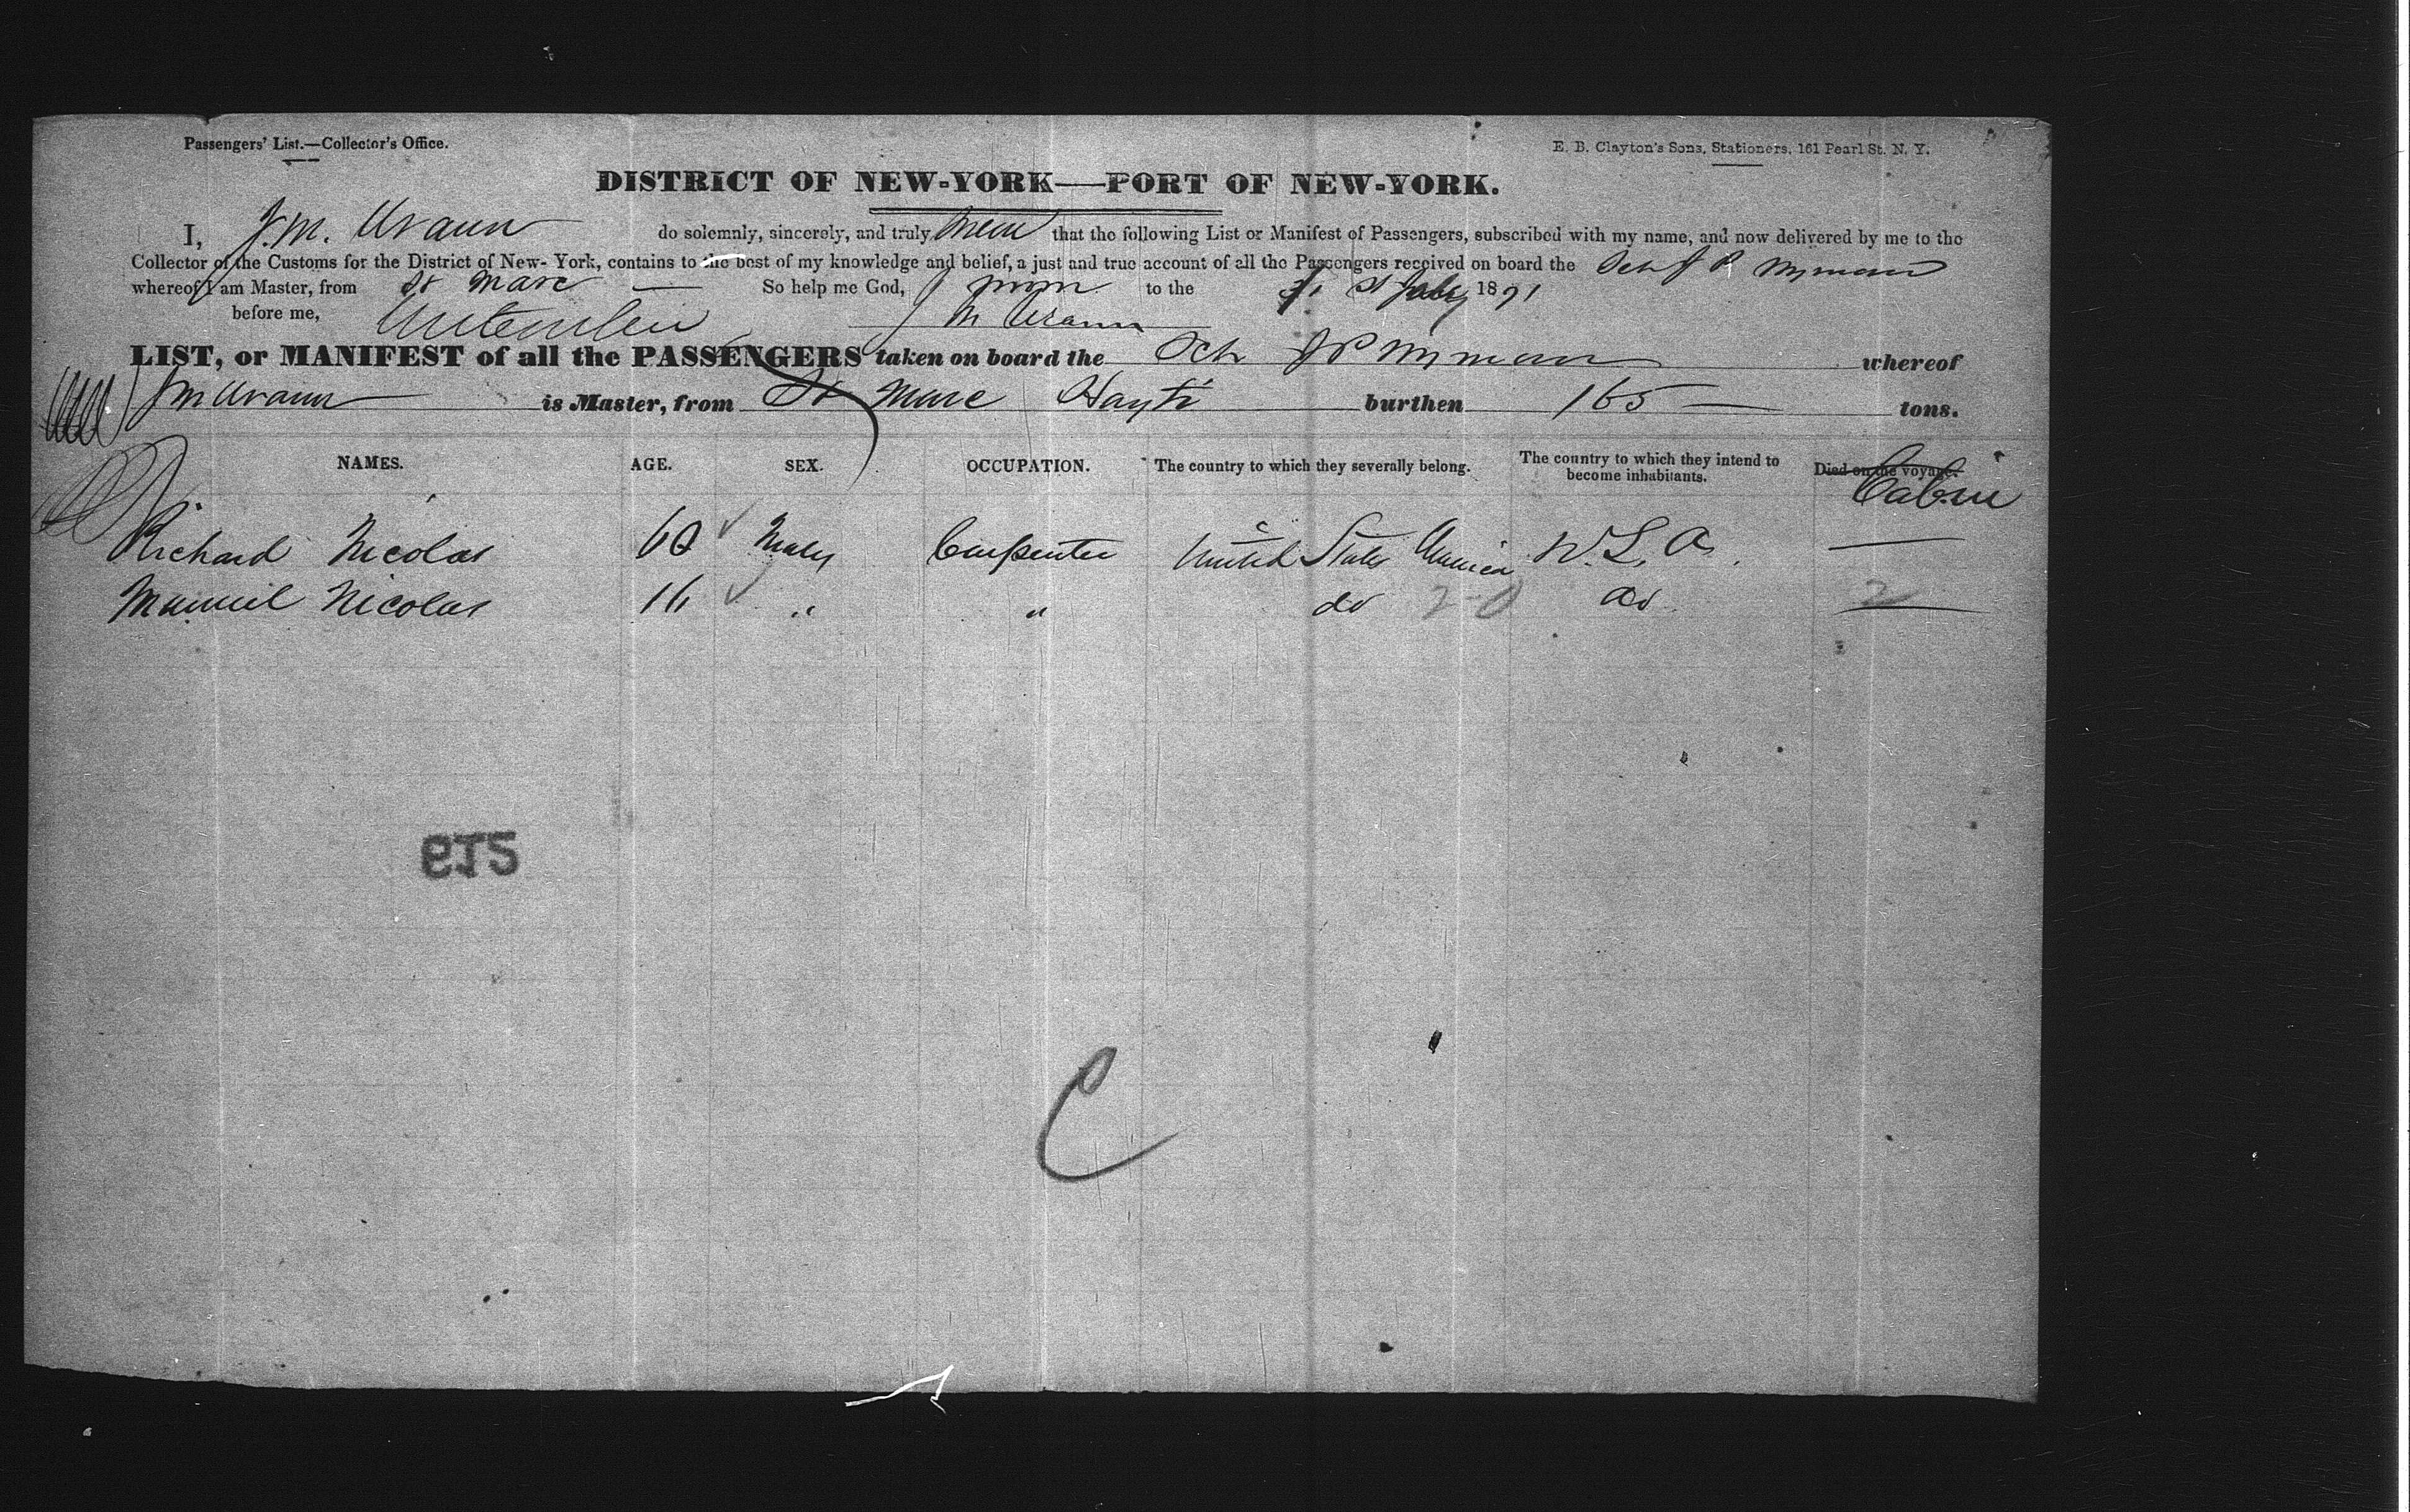 Passengers' List.—Collector's Office.
E. B. Clayton's Sons, Stationers, 161 Pearl St. N. Y.
DISTRICT OF NEW-YORK—PORT OF NEW-YORK.
I, J. M. Urann do solemnly, sincerely, and truly swear that the following List or Manifest of Passengers, subscribed with my name, and now delivered by me to the
Collector of the Customs for the District of New-York, contains to the best of my knowledge and belief, a just and true account of all the Passengers received on board the Sch J P Wyman
whereof I am Master, from St Marc So help me God, to the 31 st July 1871
before me, J M Urann
LIST, or MANIFEST of all the PASSENGERS taken on board the Sch J P Wyman whereof
J M Urann is Master, from St Marc Hayti burthen 165 tons.
NAMES. AGE. SEX. OCCUPATION. The country to which they severally belong. The country to which they intend to become inhabitants. Died on the voyage.
Cabin
Richard Nicolas 60 Male Carpenter United States America U. S. A.
Manuel Nicolas 16 " " do do 2
219
C